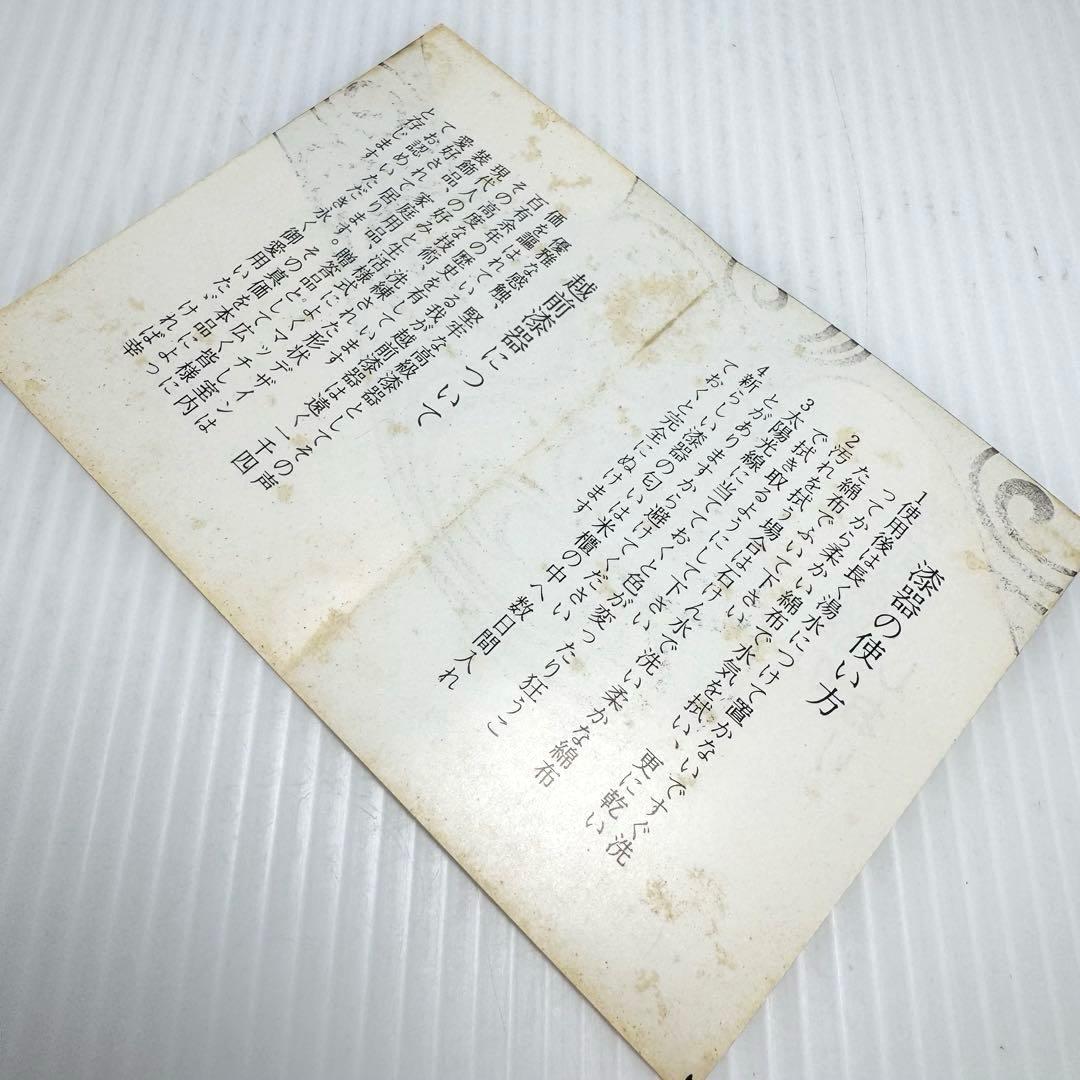 漆器の使い方
1 使用後は長く湯水につけて置かないですぐ洗
ってから柔かい綿布で水気を拭い、更に乾い
た綿布でふいて下さい
2 汚れを拭う場合は石けん水で洗い柔かな綿布
で拭き取るようにして下さい
3 太陽光線に当てておくと色が変ったり狂うこ
とがありますから避けてください
4 新らしい漆器の匂いは米櫃の中へ数日間入れ
ておくと完全にぬけます
越前漆器について
優雅な感触、堅牢な高級漆器としてその声
価を謳われている我が越前漆器は遠く一千四
百有余年の歴史を有し
その高度な技術、洗練された形状デザインは
現代人の好みと生活様式によくマッチし室内
装飾品、家庭用品、贈答品として広く皆様に
愛好されて居ります。その真価を本品によっ
てお認めいただき永く御愛用いただければ幸
と存じます